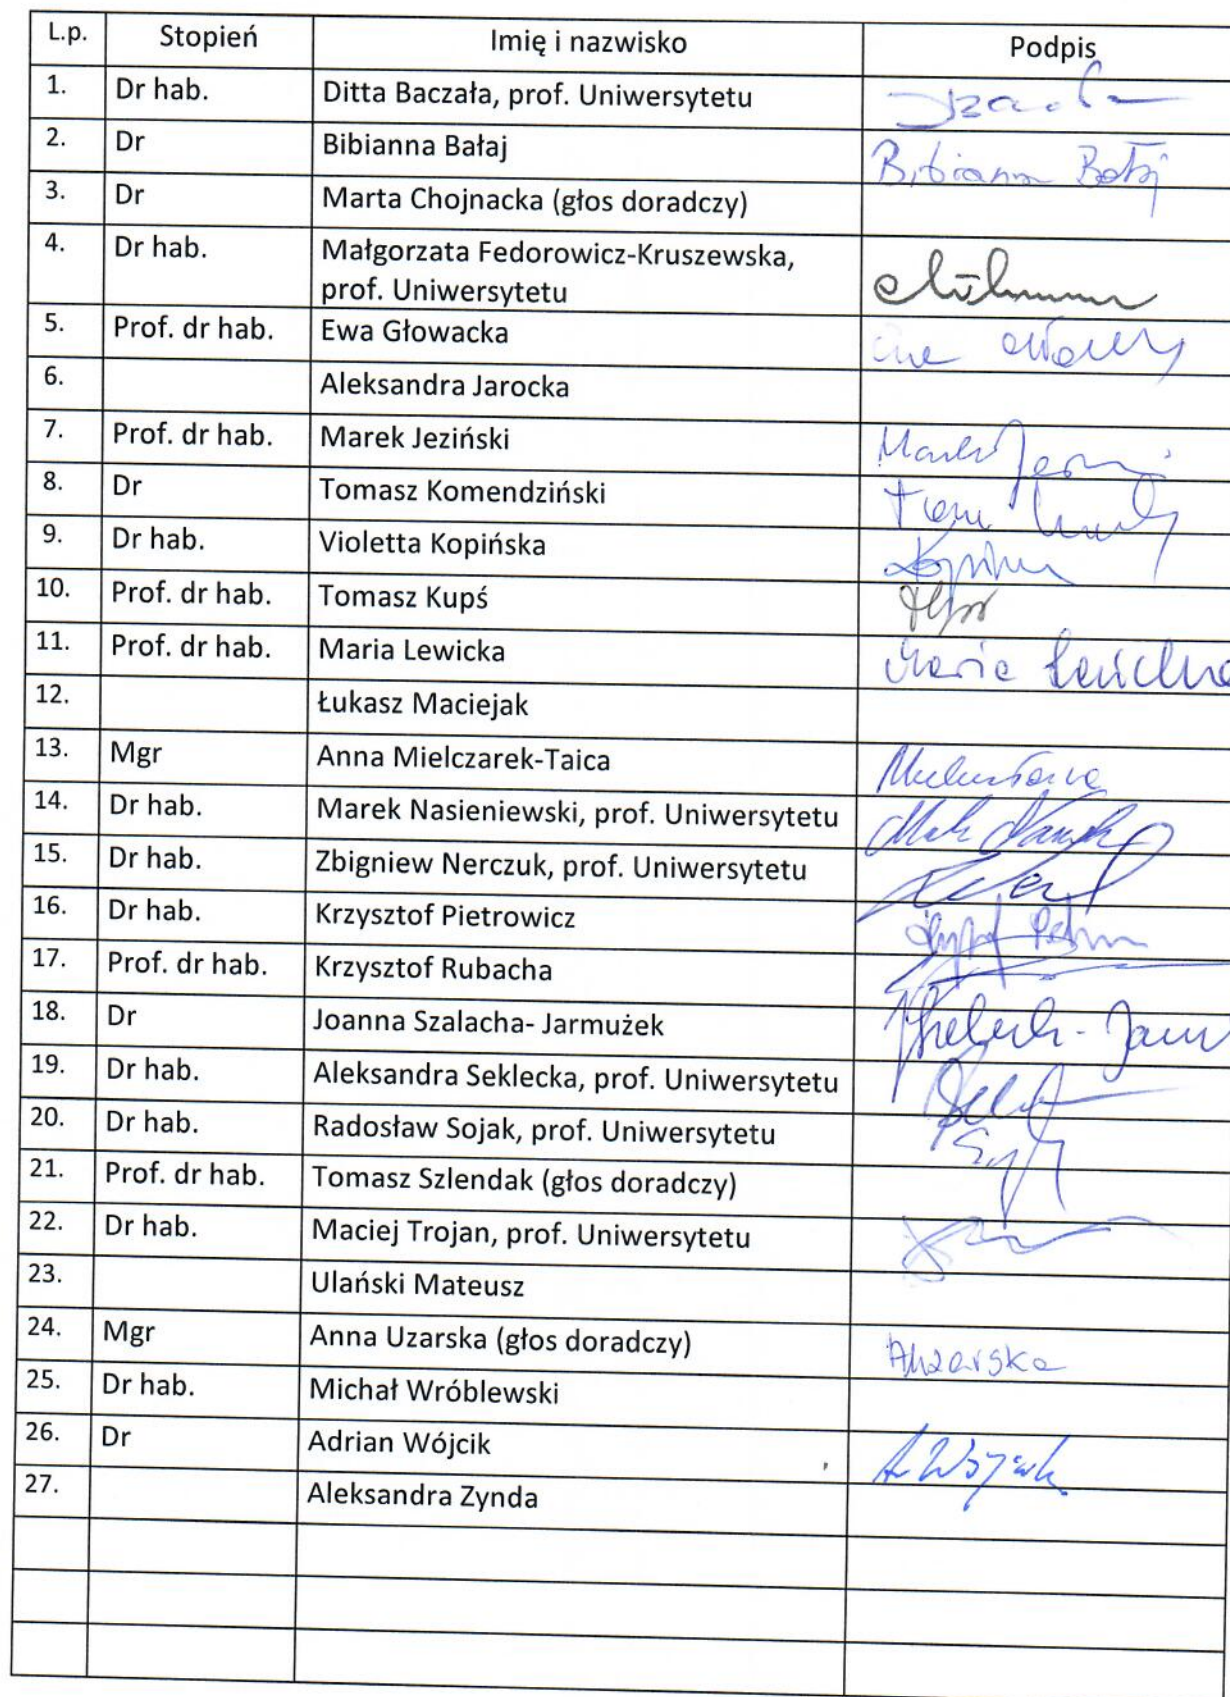 L.p. Stopień Imię i nazwisko Podpis
1. Dr hab. Ditta Baczała, prof. Uniwersytetu
2. Dr Bibianna Bałaj Bibianna Bałaj
3. Dr Marta Chojnacka (głos doradczy)
4. Dr hab. Małgorzata Fedorowicz-Kruszewska,
prof. Uniwersytetu
5. Prof. dr hab. Ewa Głowacka
6. Aleksandra Jarocka
7. Prof. dr hab. Marek Jeziński Marek
8. Dr Tomasz Komendziński
9. Dr hab. Violetta Kopińska
10. Prof. dr hab. Tomasz Kupś
11. Prof. dr hab. Maria Lewicka Maria Lewicka
12. Łukasz Maciejak
13. Mgr Anna Mielczarek-Taica
14. Dr hab. Marek Nasieniewski, prof. Uniwersytetu
15. Dr hab. Zbigniew Nerczuk, prof. Uniwersytetu
16. Dr hab. Krzysztof Pietrowicz
17. Prof. dr hab. Krzysztof Rubacha
18. Dr Joanna Szalacha- Jarmużek
19. Dr hab. Aleksandra Seklecka, prof. Uniwersytetu
20. Dr hab. Radosław Sojak, prof. Uniwersytetu
21. Prof. dr hab. Tomasz Szlendak (głos doradczy)
22. Dr hab. Maciej Trojan, prof. Uniwersytetu
23. Ulański Mateusz
24. Mgr Anna Uzarska (głos doradczy) AUzarska
25. Dr hab. Michał Wróblewski
26. Dr Adrian Wójcik A. Wójcik
27. Aleksandra Zynda